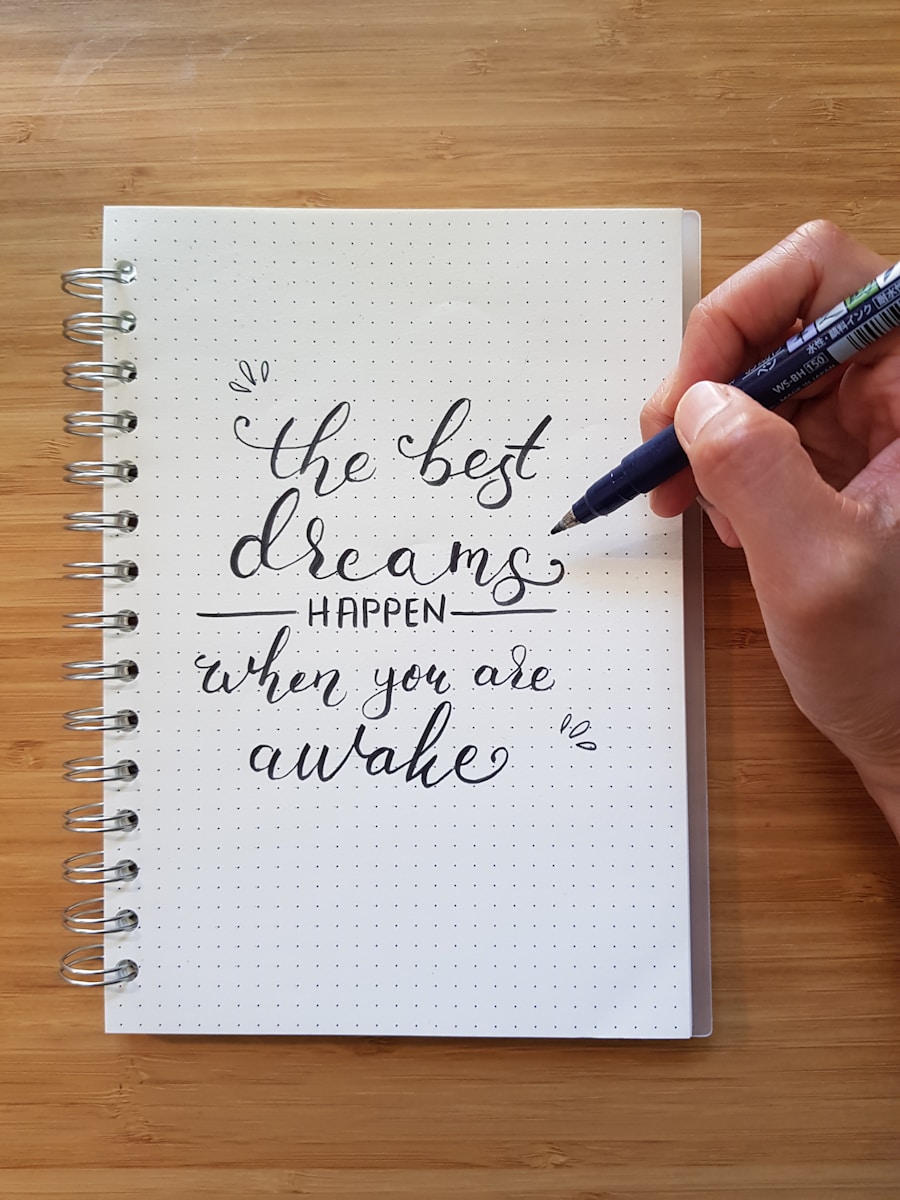 the best
dreams
HAPPEN
when you are
awake
水性・顔料インク
WS-BH 150
MADE IN JAPAN